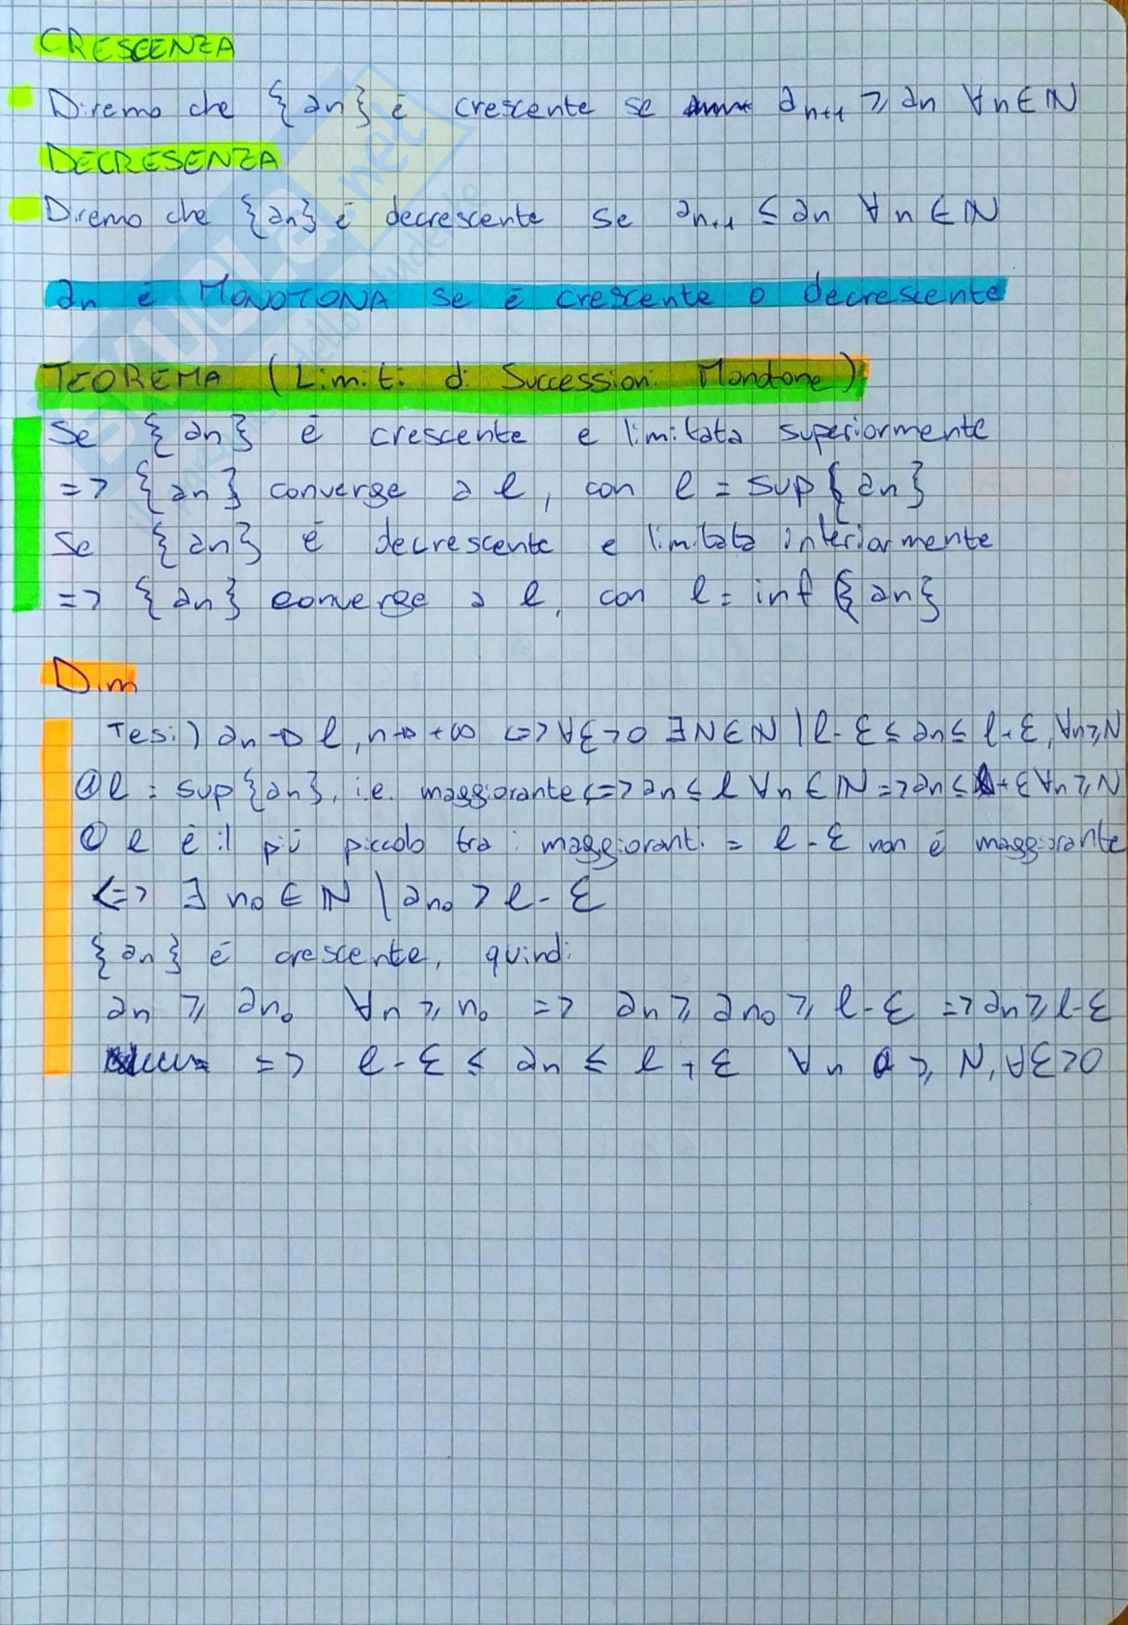 CRESCENZA
Diremo che {an} è crescente se an+1 ≥ an ∀n∈ℕ
DECRESENZA
Diremo che {an} è decrescente se an+1 ≤ an ∀n∈ℕ
an è MONOTONA se è crescente o decrescente
TEOREMA (Limiti di Successioni Monotone)
Se {an} è crescente e limitata superiormente
=> {an} converge a l, con l = sup{an}
Se {an} è decrescente e limitata inferiormente
=> {an} converge a l, con l = inf {an}
Dim
Tesi) an → l, n→+∞ <=> ∀ε>0 ∃N∈ℕ | l-ε ≤ an ≤ l+ε, ∀n≥N
@ l = sup{an}, i.e. maggiorante <=> an ≤ l ∀n∈ℕ => an ≤ l+ε ∀n≥N
l è il più piccolo tra i maggioranti = l-ε non è maggiorante
<=> ∃ n0 ∈ ℕ | an0 > l-ε
{an} è crescente, quindi
an ≥ an0 ∀n ≥ n0 => an ≥ an0 ≥ l-ε => an ≥ l-ε
=> l-ε ≤ an ≤ l+ε ∀n ≥ N, ∀ε>0